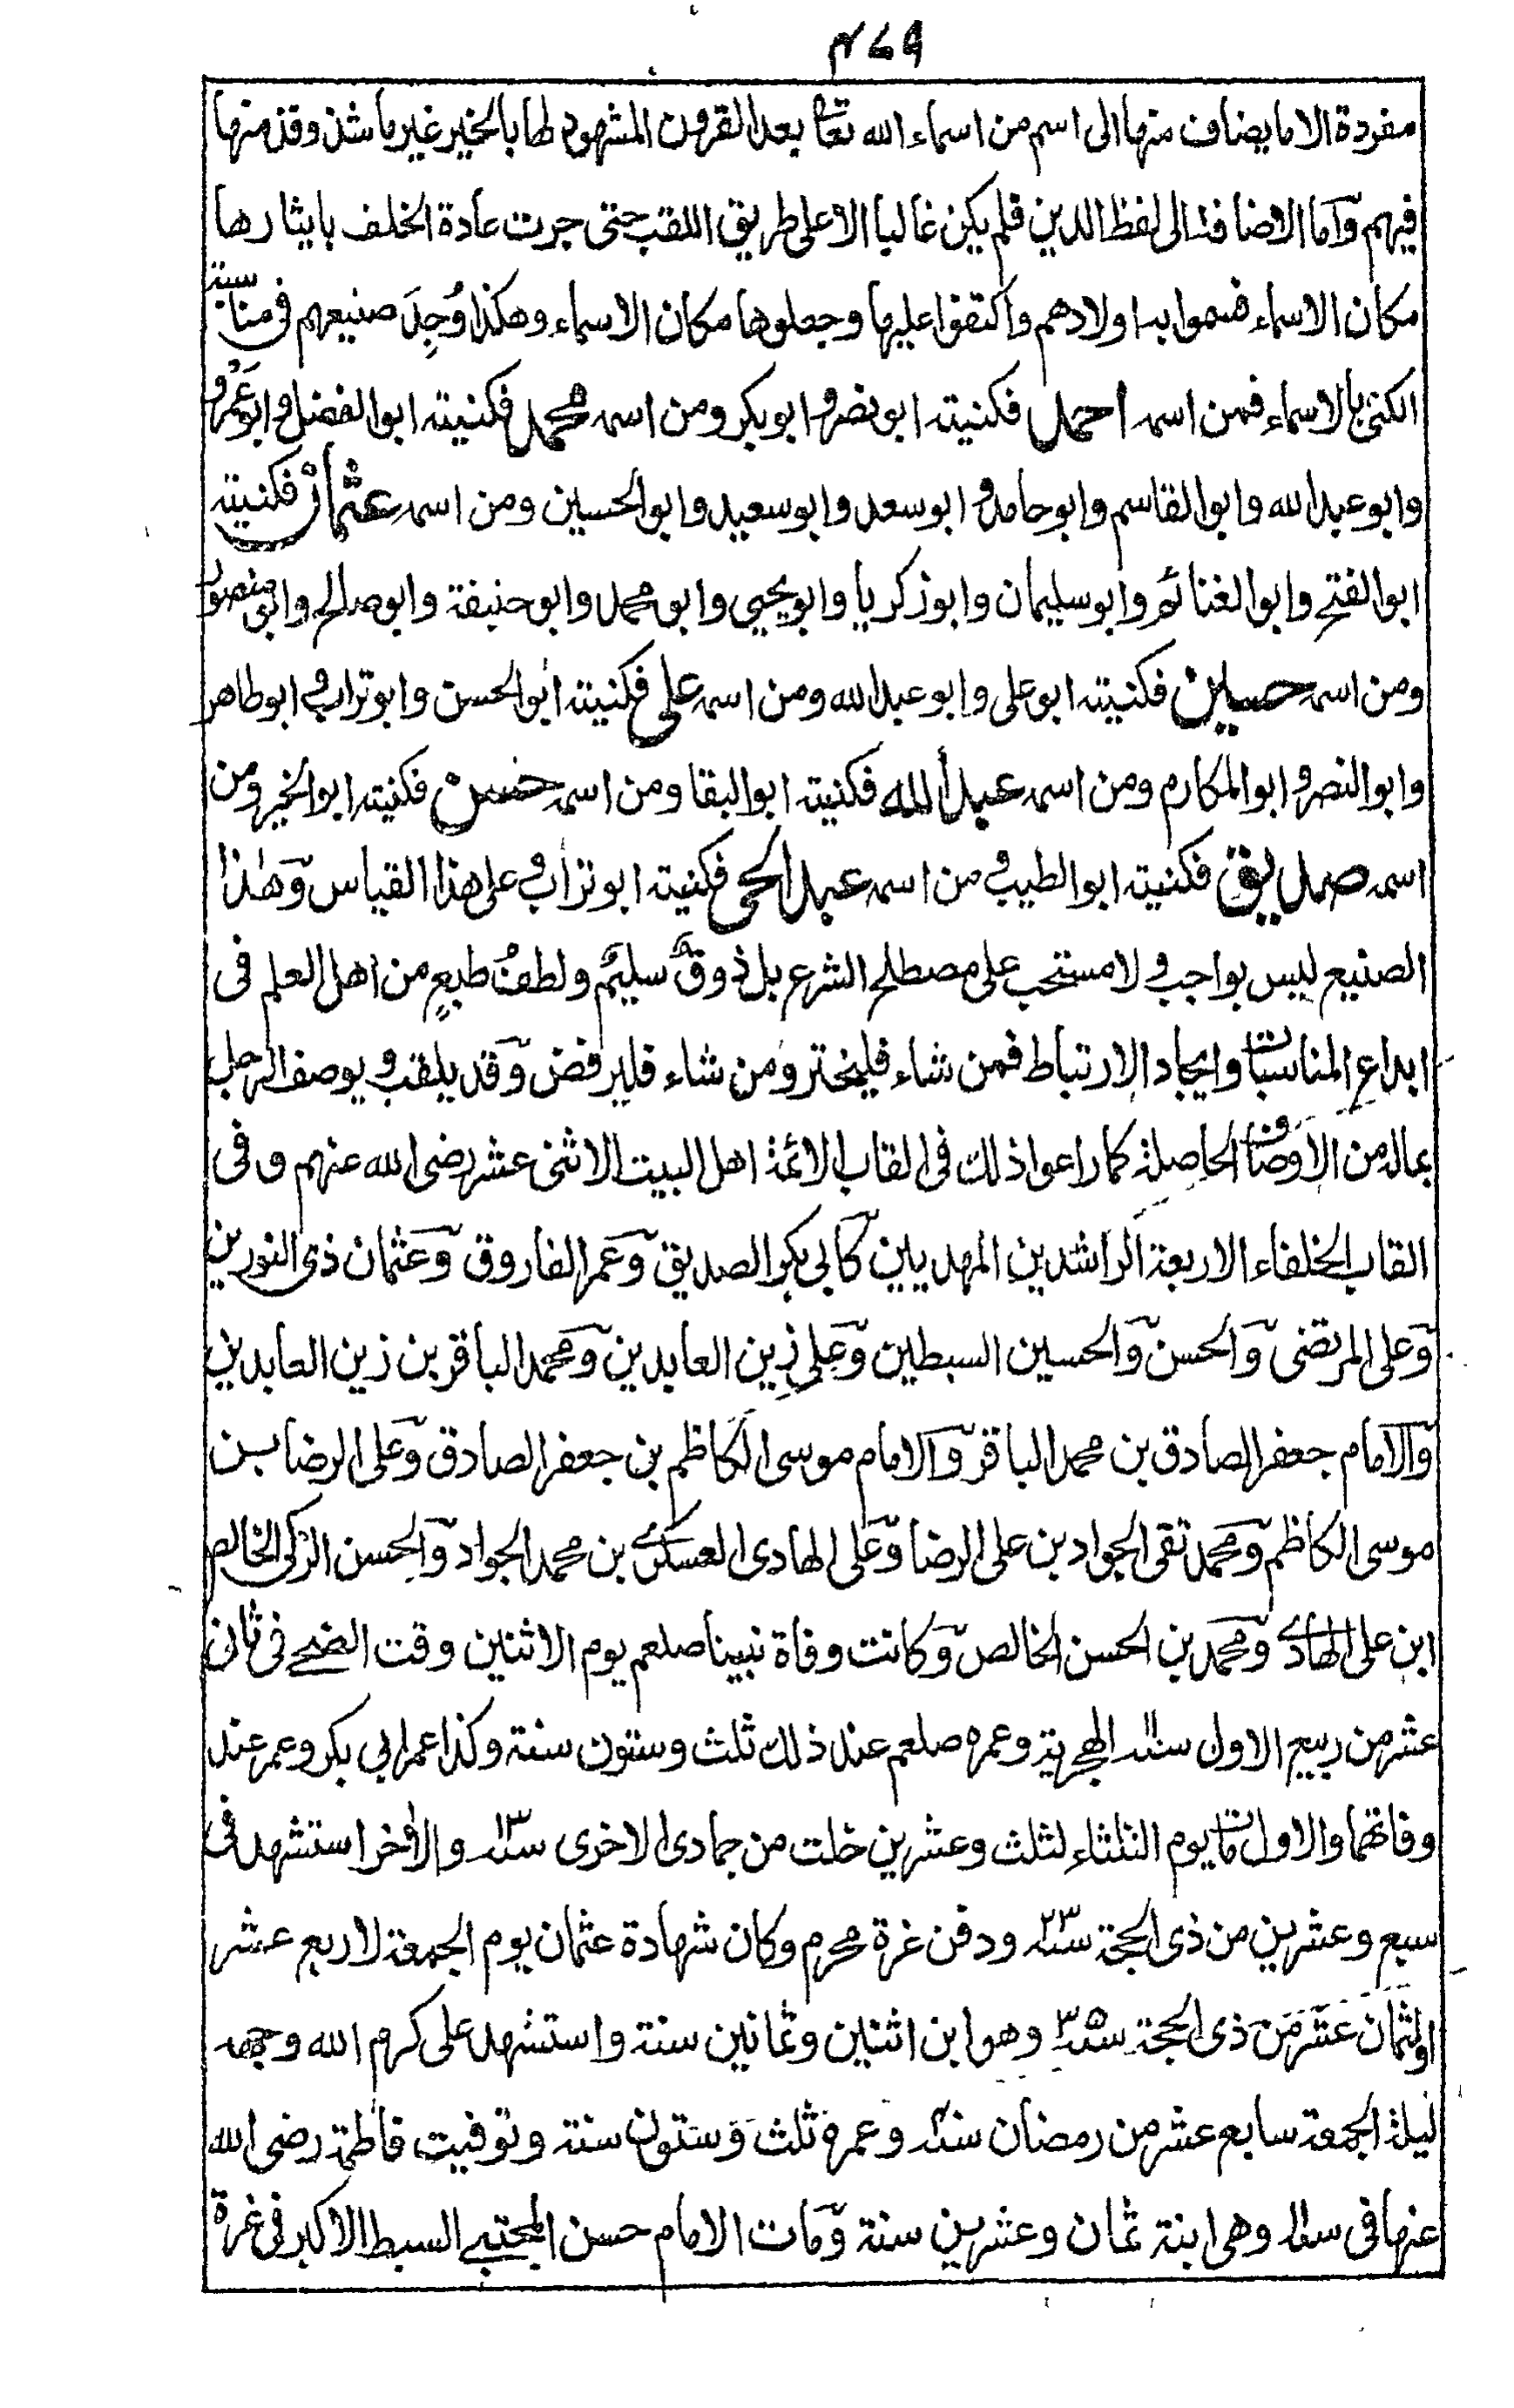 ٤٧٩
مفردة الا ما يضاف منها الى اسم من اسماء الله تعا بعد القرون المشهود لها بالخير غير ما شذ وقد منها
فيهم وَاما الاضافة الى لفظ الدين فلم يكن غالبا الا على طريق اللقب حتى جرت عادة الخلف بايثارها
مكان الاسماء فسموا به اولادهم واكتفوا عليها وجعلوها مكان الاسماء وهكذا وُجِدَ صنيعهم فى مناسبة
الكنى بالاسماء فمن اسمه احمد فكنيته ابو نصر و ابو بكر ومن اسمه محمد فكنيته ابو الفضل و ابو عَمْرو
وابو عبد الله وابو القاسم وابو حامد و ابو سعد وابو سعيد وابو الحسين ومن اسمه عثمان فكنيته
ابو الفتح وابو الغنائم وابو سليمان وابو زكريا وابو يحيى وابو محمد وابو حنيفة وابو صالح وابو منصور
ومن اسمه حسين فكنيته ابو على وابو عبد الله ومن اسمه على فكنيته ابو الحسن وابو تراب و ابو طاهر
وابو النصر و ابو المكارم ومن اسمه عبد الله فكنيته ابو البقا ومن اسمه حسن فكنيته ابو الخير ومن
اسمه صديق فكنيته ابو الطيب و من اسمه عبد الحى فكنيته ابو تراب و على هذا القياس وَهذا
الصنيع ليس بواجب و لا مستحب على مصطلح الشرع بل ذوقٌ سليمٌ ولطفُ طبعٍ من اهل العلم فى
ابداع المناسبات وايجاد الارتباط فمن شاء فليختر ومن شاء فليرفض وَقد يلقب و يوصف الرجل
بماله من الاوصاف الحاصلة كما راعوا ذلك فى القاب الائمة اهل البيت الاثنى عشر رضى الله عنهم وفى
القاب الخلفاء الاربعة الراشدين المهديين كَابى بكر الصديق وَعمر الفاروق وَعثمان ذى النورين
وَعلى المرتضى وَالحسن وَالحسين السبطين وَعلى زين العابدين وَمحمد الباقر بن زين العابدين
وَالامام جعفر الصادق بن محمد الباقر وَالامام موسى الكاظم بن جعفر الصادق وَعلى الرضا بن
موسى الكاظم وَمحمد تقى الجواد بن على الرضا وَعلى الهادى العسكرى بن محمد الجواد وَالحسن الزكى الخالص
ابن على الهادى وَمحمد بن الحسن الخالص وَكانت وفاة نبينا صلعم يوم الاثنين وقت الضحى فى ثان
عشر من ربيع الاول سنة ١١ الهجرية وعمره صلعم عند ذلك ثلث وستون سنة وكذا عمر ابى بكر وعمر عند
وفاتهما والاول مات يوم الثلثاء لثلث وعشرين خلت من جمادى الاخرى سنة ١٣ والاخر استشهد فى
سبع وعشرين من ذى الحجة سنة ٢٣ ودفن غرة محرم وكان شهادة عثمان يوم الجمعة لاربع عشر
او لثمان عشر من ذى الحجة سنة ٣٥ وهو ابن اثنين وثمانين سنة واستشهد على كرم الله وجهه
ليلة الجمعة سابع عشر من رمضان سنة ٤٠ وعمره ثلث وستون سنة وتوفيت فاطمة رضى الله
عنها فى سنة ١١ وهى ابنة ثمان وعشرين سنة وَمات الامام حسن المجتبى السبط الاكبر فى غرة